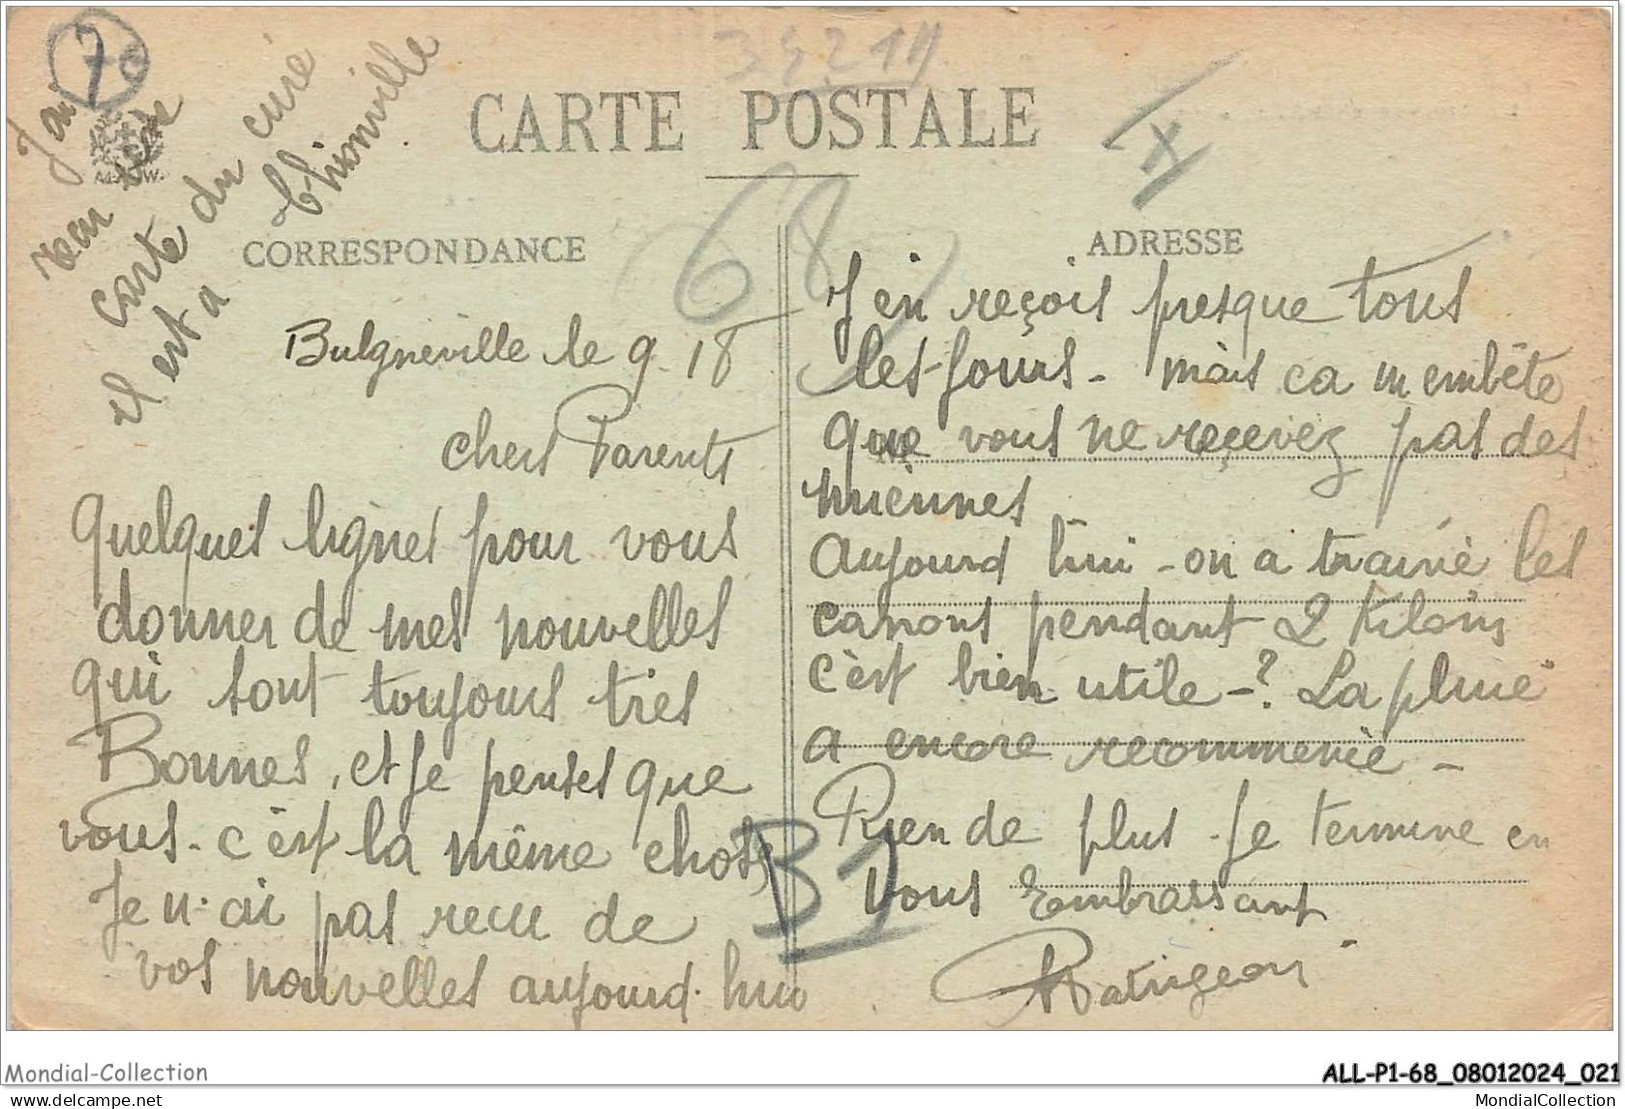 7
J'ai
recu une
carte du curé
il est a Thionville
34211
CARTE POSTALE
X
68
CORRESPONDANCE
ADRESSE
Bulgnéville le 9. 18
chers Parents
Quelques lignes pour vous
donner de mes nouvelles
qui sont toujours tres
Bonnes, et Je penses que
vous - c'est la même chose
Je n'ai pas recu de
vos nouvelles aujourd'hui
J'en reçois presque tous
les jours - mais ca m'embête
que vous ne reçevez pas des
miennes
aujourd'hui - on a trainé les
canons pendant 2 Kiloms
c'est bien utile - ? La pluie
a encore recommencé -
Rien de plus - Je termine en
vous Embrassant
B1
Mondial-Collection
ALL-P1-68_08012024_021
delcampe.net
MondialCollection